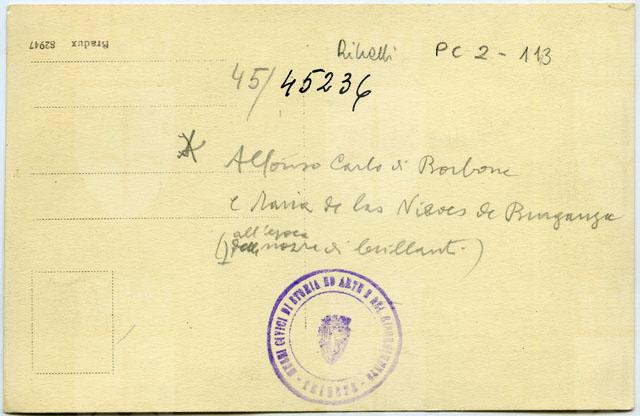 Bradux 82947
Ribelli PC 2 - 113
45/45236
Alfonso Carlo di Borbone
e Maria de las Nieves de Braganza
(all'epoca
delle nozze di brillanti)
MUSEI CIVICI DI STORIA ED ARTE E DEL RISORGIMENTO
- TRIESTE -